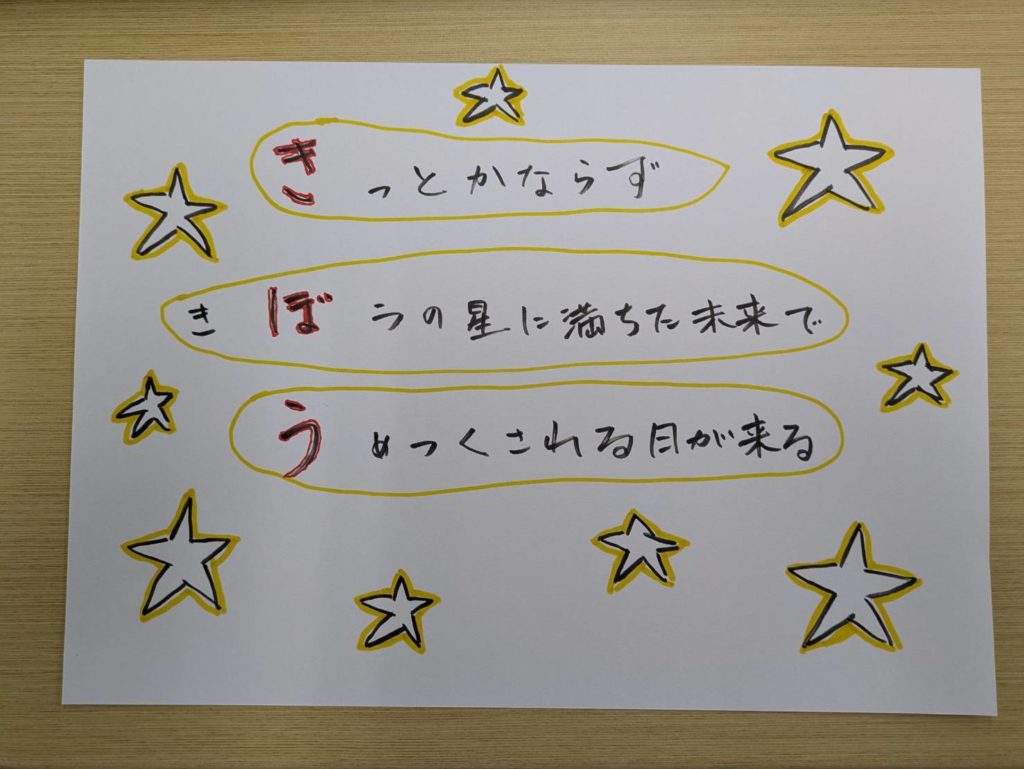 きっとかならず
きぼうの星に満ちた未来で
うめつくされる日が来る